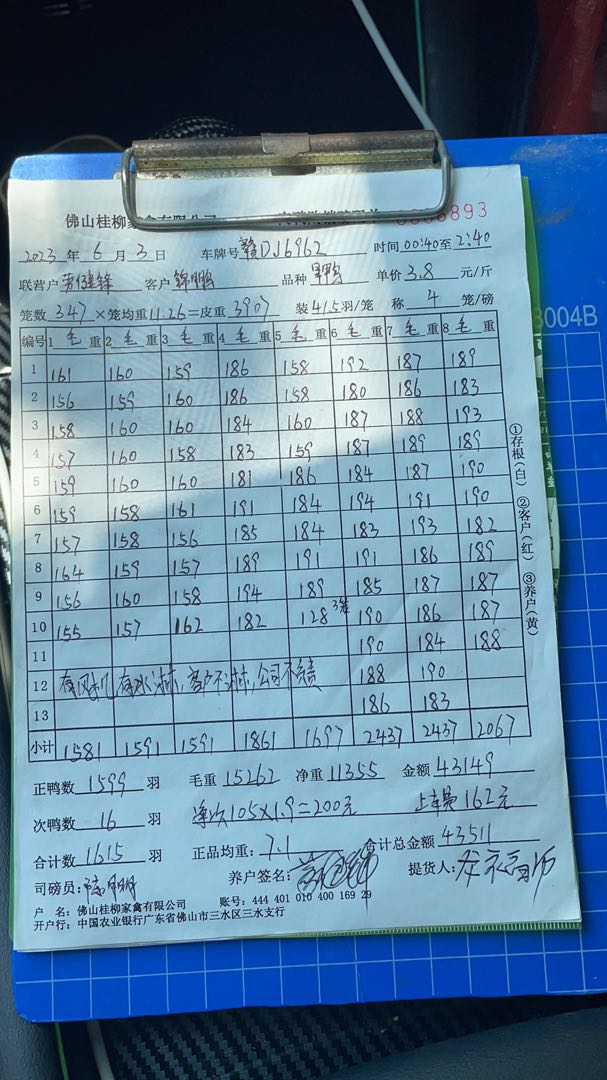 佛山桂柳家禽有限公司 893
2023 年 6 月 3 日 车牌号 赣DJ6962 时间 00:40 至 2:40
联营户 客户 锦鹏 品种 单价 3.8 元/斤
笼数 347 ×笼均重 11.26 =皮重 3907 装 4/5 羽/笼 称 4 笼/磅
编号 1 毛 重 2 毛 重 3 毛 重 4 毛 重 5 毛 重 6 毛 重 7 毛 重 8 毛 重
1 161 160 159 186 158 192 187 189
2 156 159 160 186 158 180 186 183
3 158 160 160 184 160 187 188 193
4 157 160 158 183 159 187 189 189
5 159 160 160 181 186 184 187 190
6 159 158 161 191 184 194 191 190
7 157 158 156 185 184 183 193 182
8 164 159 157 189 191 191 186 189
9 156 160 158 194 189 185 187 187
10 155 157 162 182 128 3笼 190 186 187
11 190 184 188
12 有风机,有水淋,客户不淋,公司不赔 188 190
13 186 183
小计 1581 1591 1591 1861 1697 2437 2437 2067
①存根(白) ②客户(红) ③养户(黄)
正鸭数 1599 羽 毛重 15262 净重 11355 金额 43149
次鸭数 16 羽 105×1.9=200元 162元
合计数 1615 羽 正品均重: 7.1 合计总金额 43511
司磅员: 养户签名: 提货人:
户 名: 佛山桂柳家禽有限公司 账号: 444 401 010 400 169 29
开户行: 中国农业银行广东省佛山市三水区三水支行
3004B